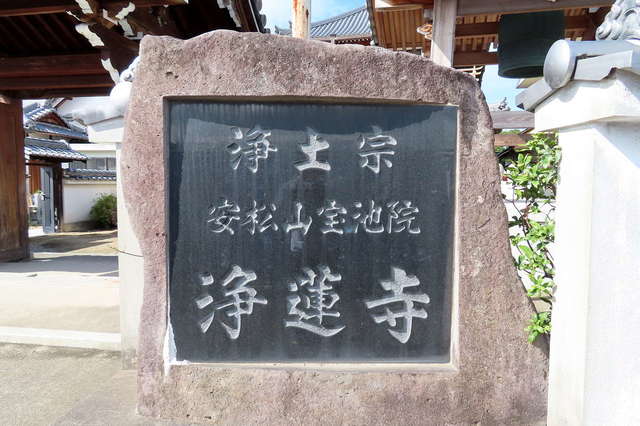 浄土宗
安松山宝池院
浄蓮寺